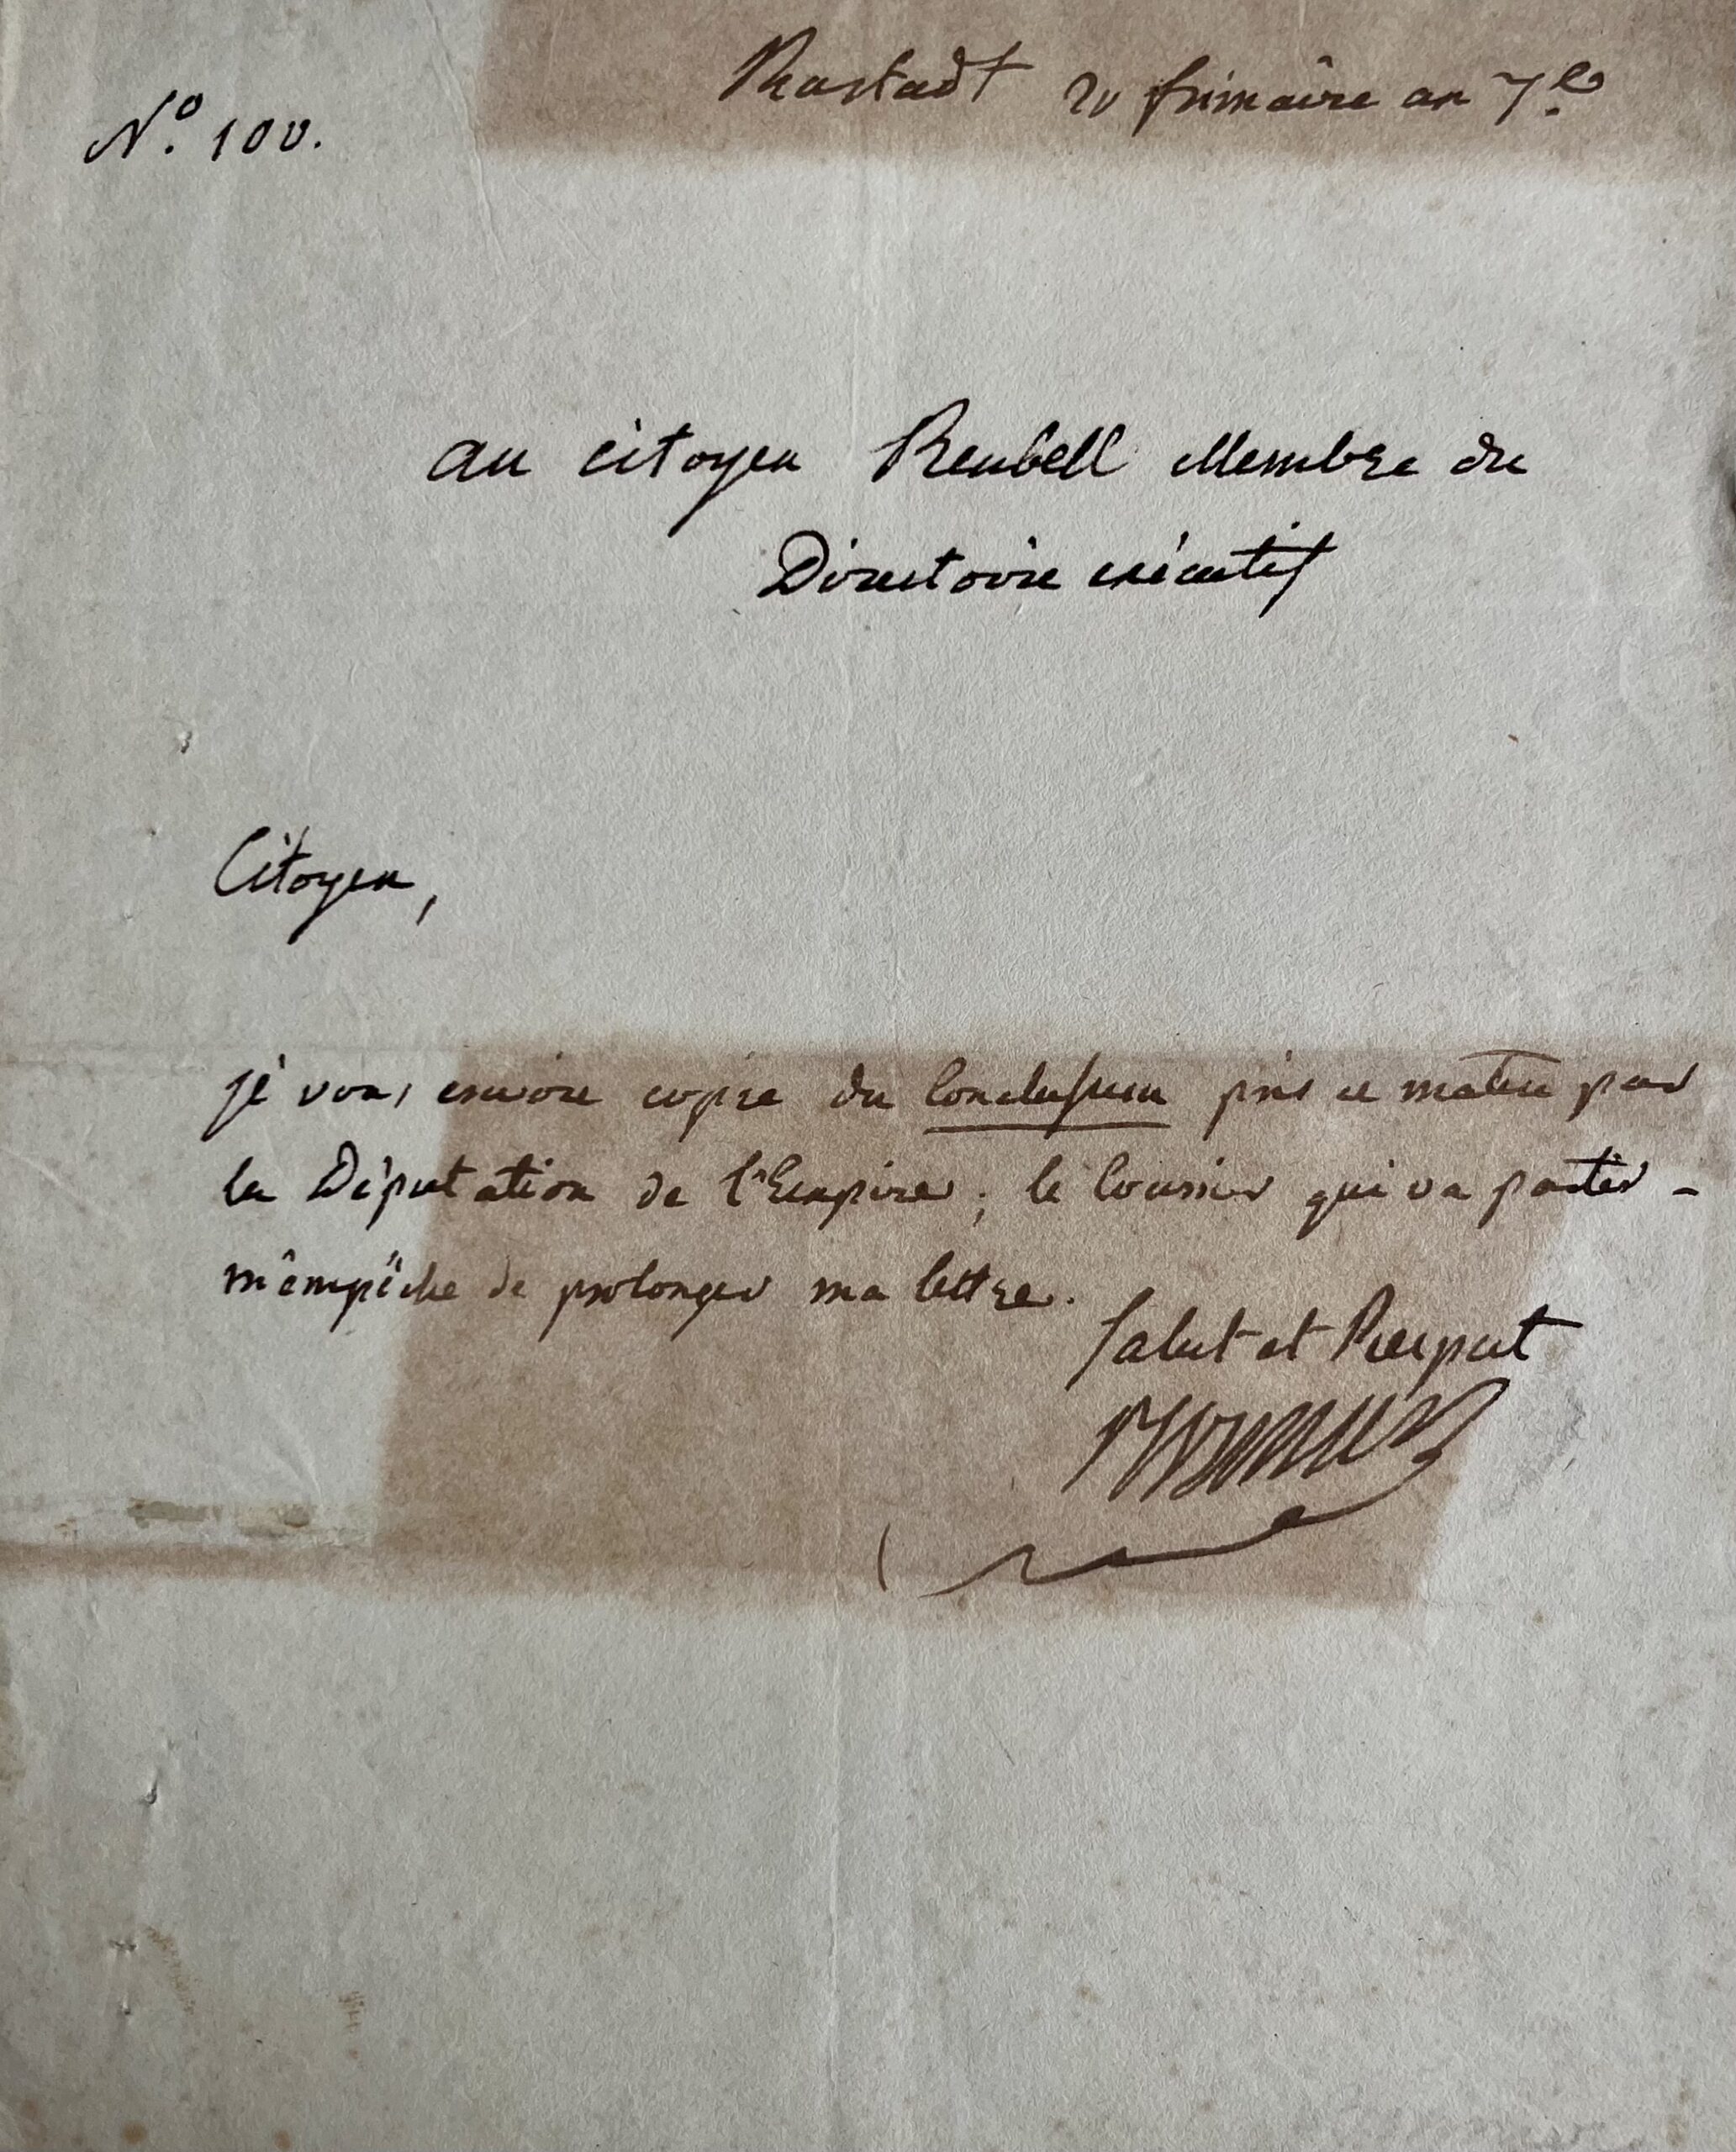 Rastadt 20 frimaire an 7.e
N.o 100.
au citoyen Reubell Membre du
Directoire exécutif
Citoyen,
je vous envoie copie du Conclusum pris ce matin par
la Députation de l'Empire; le Courier qui va partir -
m'empêche de prolonger ma lettre.
Salut et Respect